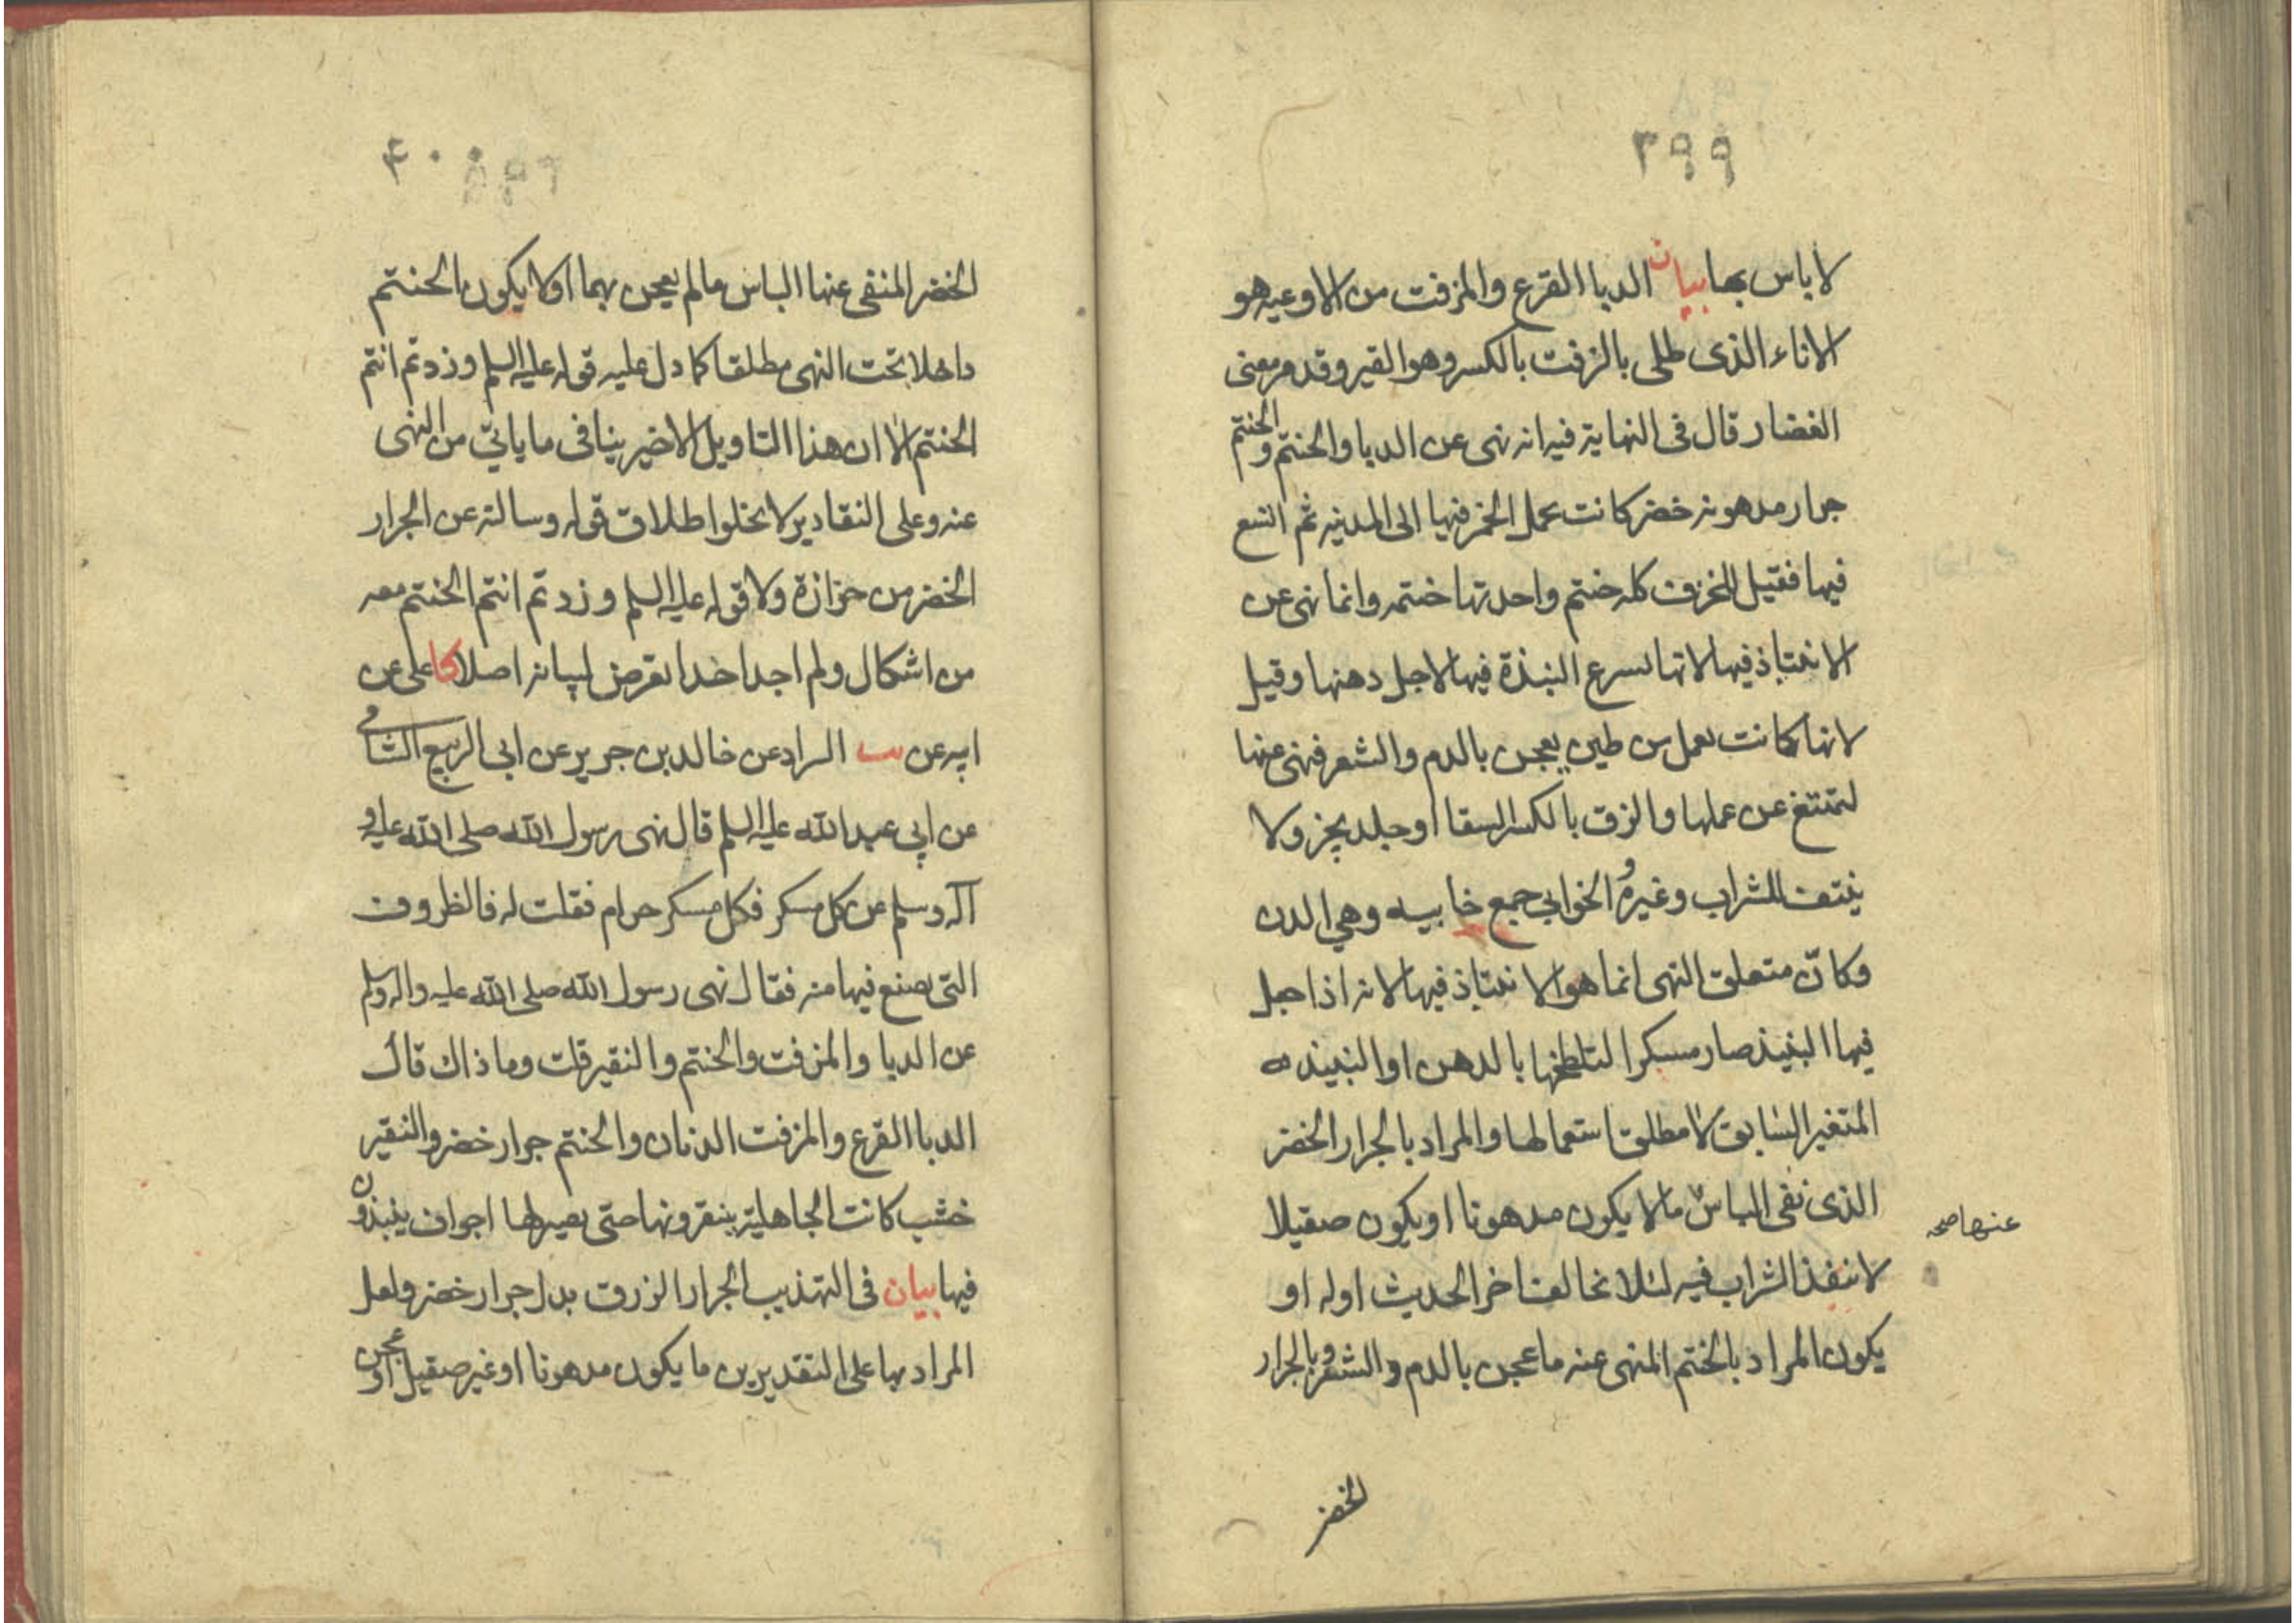 ٣٩٩
لا باس بها بيان الدبا القرع والمزفت من الاوعيه هو
الاناء الذى طلى بالزفت بالكسر وهو القير وقد مر معنى
الغضار قال فى النهاية فيه انه نهى عن الدبا والحنتم والحنتم
جرار مدهونه خضر كانت تحمل الخمر فيها الى المدينه ثم اتسع
فيها فقيل للخزف كله حنتم واحدتها حنتمه وانما نهى عن
الانتباذ فيها لانها تسرع الشدة فيها لاجل دهنها وقيل
لانها كانت تعمل من طين يعجن بالدم والشعر فنهى عنها
لتمتنع عن عملها والزق بالكسر السقا او جلد يجز ولا
ينتف للشراب وغيره والخوابي جمع خابيه وهي الدن
وكانّ متعلق النهى انما هو الانتباذ فيها لانه اذا جعل
فيها النبيذ صار مسكرا لتلطخها بالدهن او النبيذ
المتغير السابق لا مطلق استعمالها والمراد بالجرار الخضر
الذى نفى الباس ما لا يكون مدهونا او يكون صقيلا
عنها صح
لا ينفذ الشراب فيه لئلا يخالف اخر الحديث اوله او
يكون المراد بالحنتم المنهى عنه ما عجن بالدم والشعر وبالجرار
الخضر
٤٠٠
الخضر المنفى عنها الباس ما لم يعجن بهما او لا يكون الحنتم
داخلا تحت النهى مطلقا كما دل عليه قوله عليه السلم وزدتم انتم
الحنتم الا ان هذا التاويل الاخير ينافى ما ياتي من النهى
عنه وعلى التقادير لا يخلوا طلاق قوله وسالته عن الجرار
الخضر من حزازة ولا قوله عليه السلم وزدتم انتم الحنتم معه
من اشكال ولم اجد احدا تعرض لبيانه اصلا كا على عن
ابيه عن السراد عن خالد بن جرير عن ابى الربيع الشامى
عن ابي عبد الله عليه السلم قال نهى رسول الله صلى الله عليه و
آله وسلم عن كل مسكر فكل مسكر حرام فقلت له فالظروف
التى يصنع فيها منه فقال نهى رسول الله صلى الله عليه واله وسلم
عن الدبا والمزفت والحنتم والنقير قلت وما ذاك قال
الدبا القرع والمزفت الدنان والحنتم جرار خضر والنقير
خشب كانت الجاهلية ينقرونها حتى يصير لها اجواف ينبذون
فيها بيان فى التهذيب الجرار الزرق بدل جرار خضر ولعل
المراد بها على التقديرين ما يكون مدهونا او غير صقيل او عجن